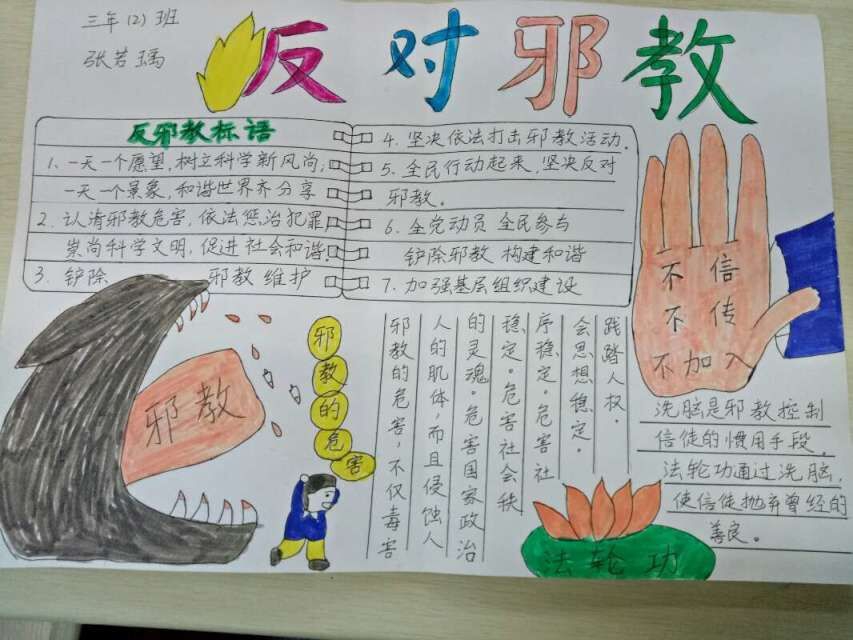 三年(2)班
张若瑀
反对邪教
反邪教标语
1、一天一个愿望,树立科学新风尚;
一天一个景象,和谐世界齐分享
2、认清邪教危害,依法惩治犯罪,
崇尚科学文明,促进社会和谐
3、铲除 邪教 维护
4、坚决依法打击邪教活动.
5、全民行动起来,坚决反对
邪教.
6、全党动员 全民参与
铲除邪教 构建和谐
7、加强基层组织建设
不信
不传
不加入
邪教
邪教的危害
邪教的危害,不仅毒害
人的肌体,而且侵蚀人
的灵魂。危害国家政治
稳定。危害社会秩
序稳定。危害社
会思想稳定。
践踏人权.
洗脑是邪教控制
信徒的惯用手段.
法轮功通过洗脑,
使信徒抛弃曾经的
善良。
法轮功